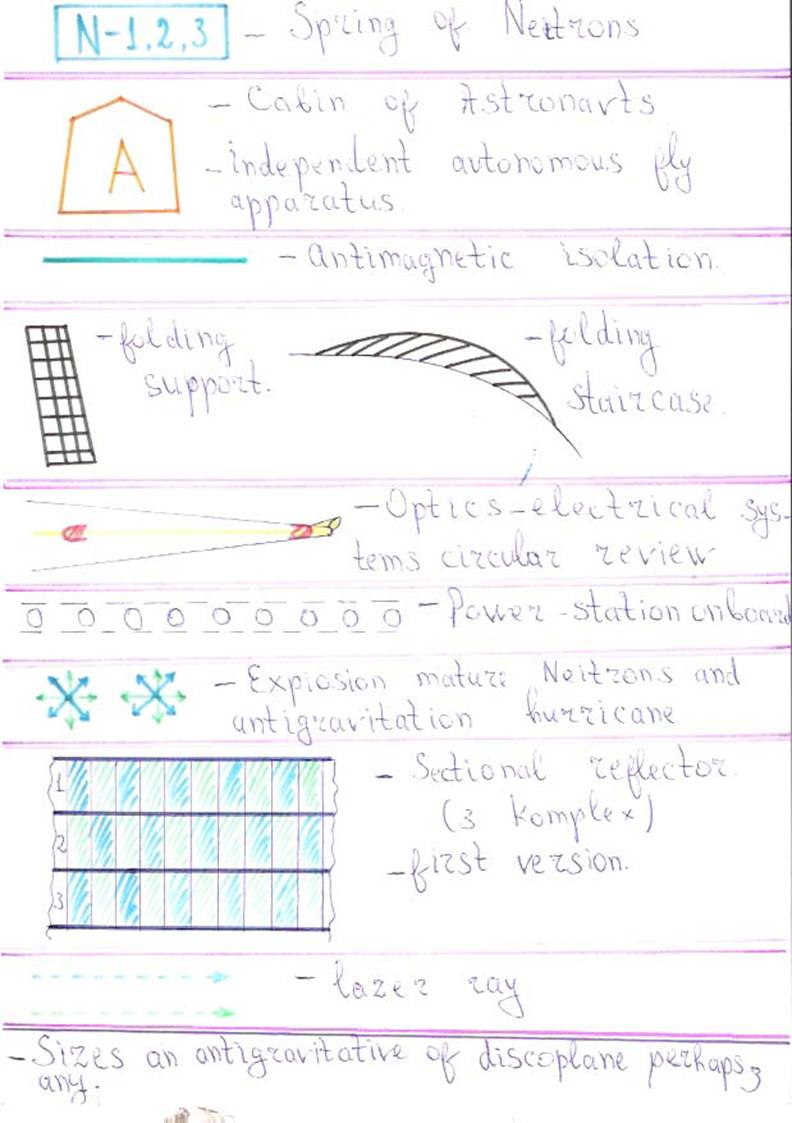 N-1,2,3 - Spring of Neitrons
- Cabin of Astronavts
A
- independent avtonomous fly
apparatus.
- Antimagnetic isolation.
- folding
support.
- folding
staircase.
- Optics-electrical sys-
tems circular review
- Power-station onboard
- Explosion mature Neitrons and
antigravitation hurricane
1
2
3
- Sectional reflector.
(3 Komplex)
- first version.
- lazer ray
- Sizes an antigravitative of discoplane perhaps
any.